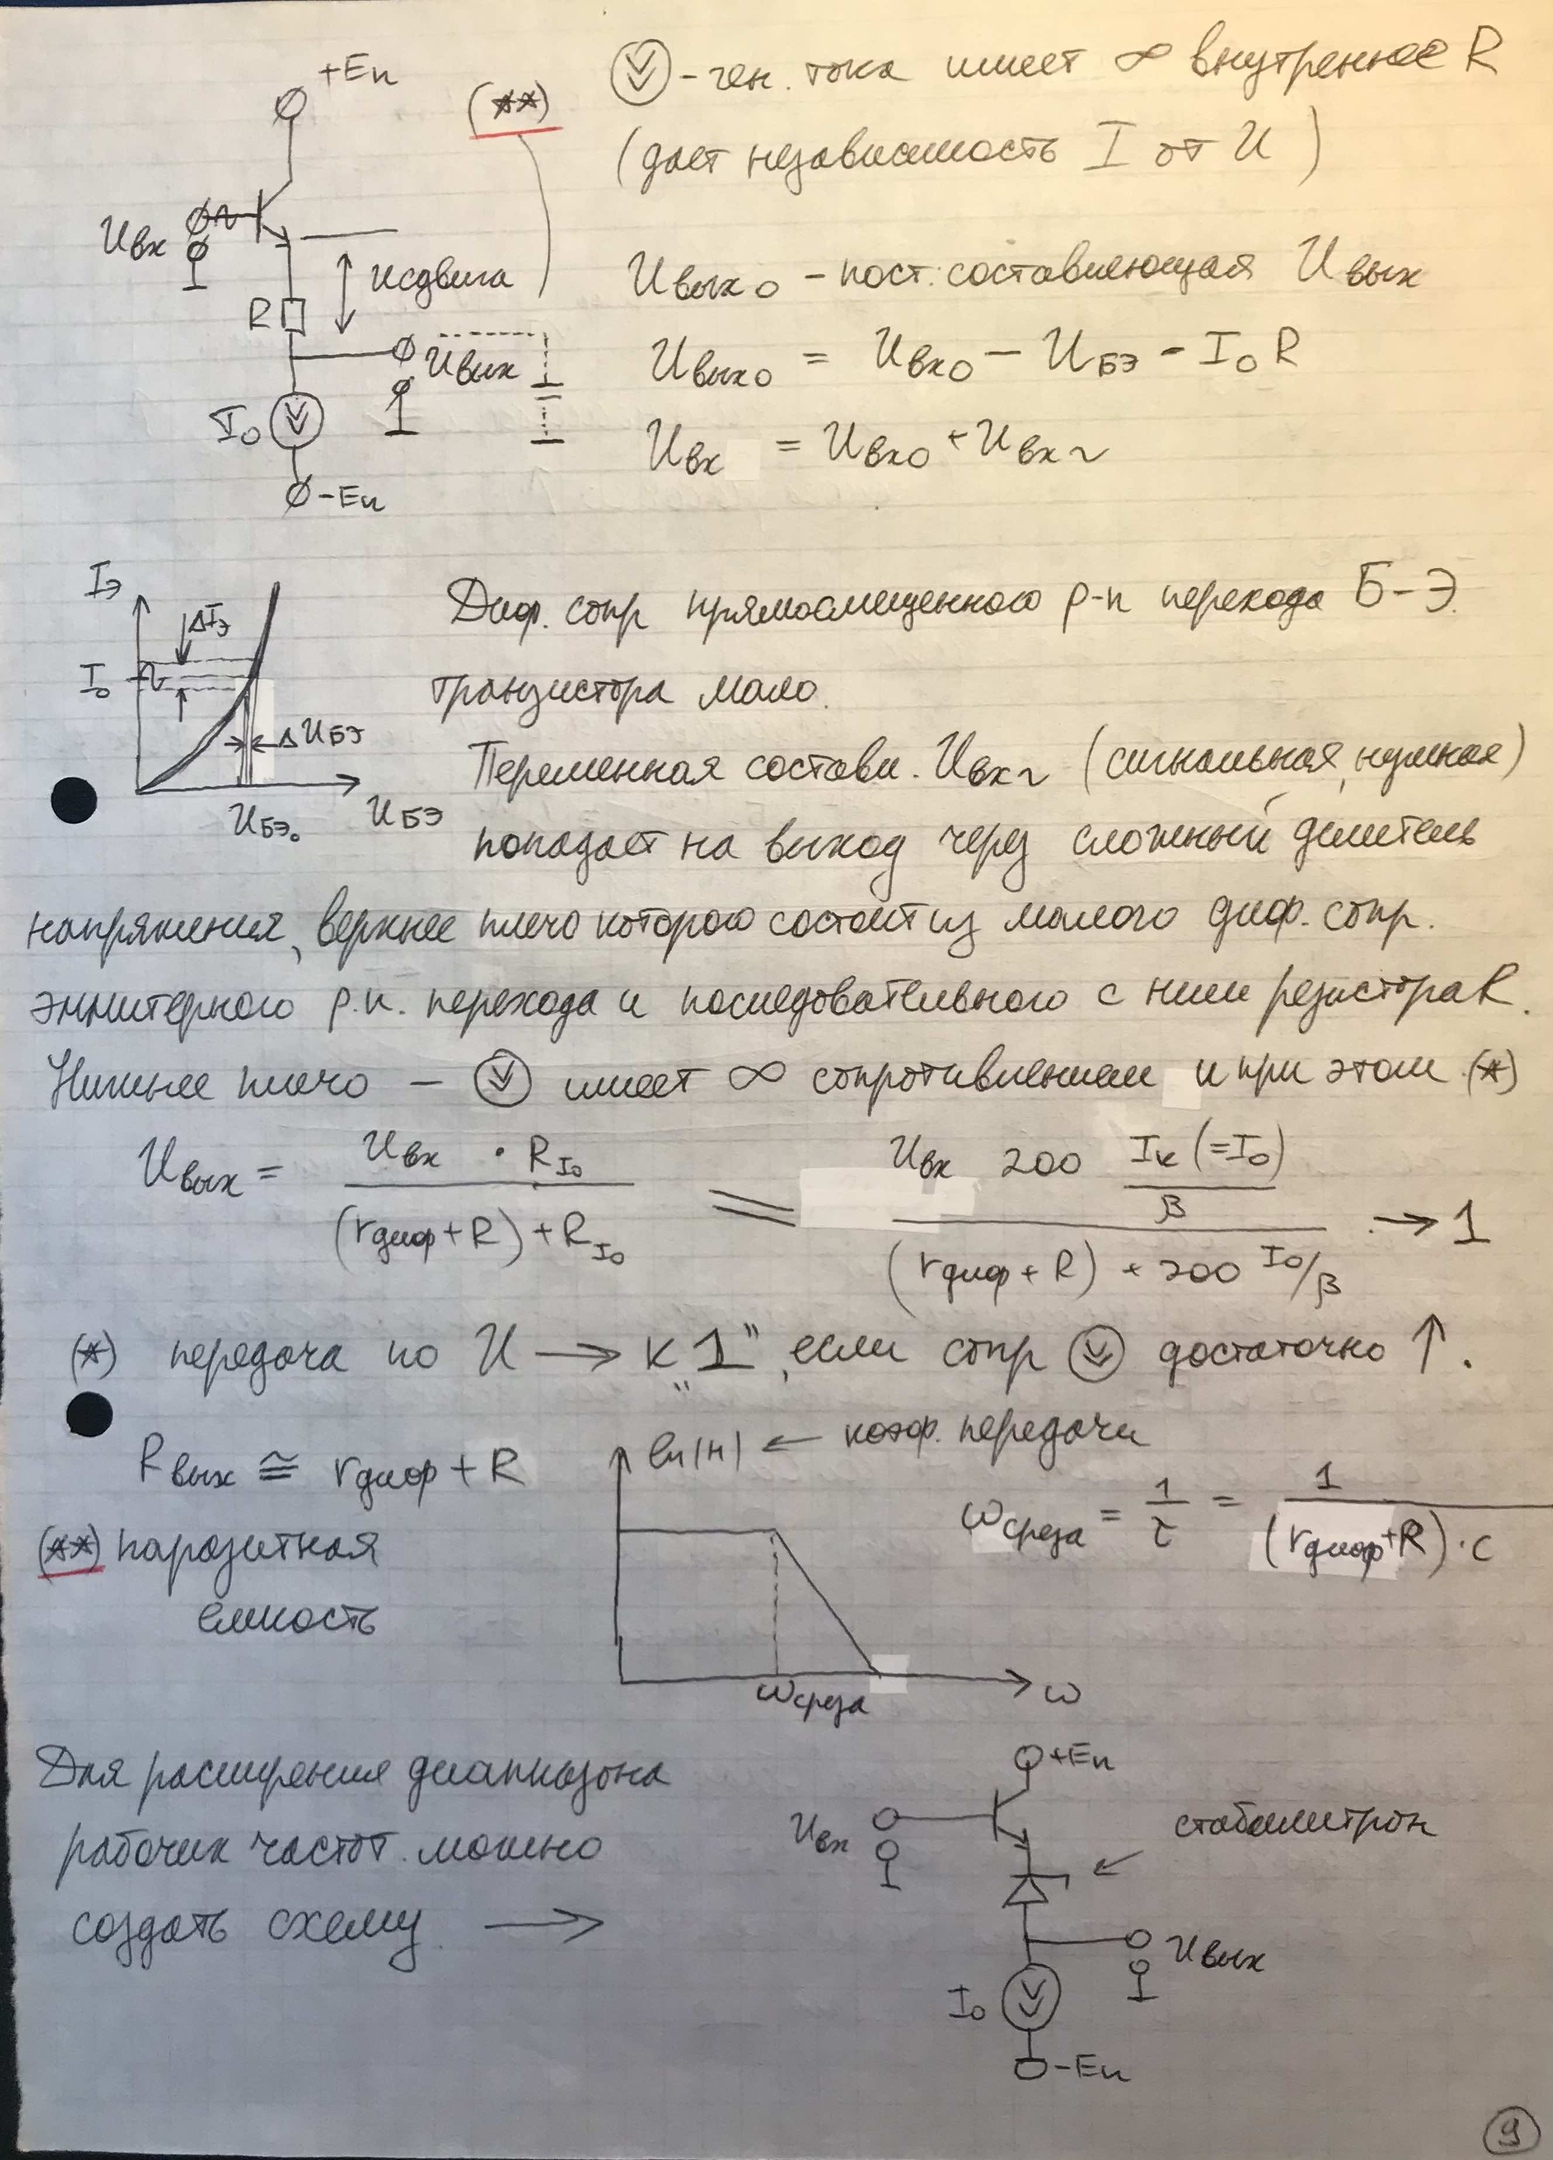 +Eп
(**)
-ген. тока имеет ∞ внутреннее R
(дает независимость I от U)
Uвх
Uсдвига
R
Uвых
I₀
-Eп
Uвых0 - пост. составляющая Uвых
Uвых0 = Uвх0 - UБЭ - I₀R
Uвх = Uвх0 + Uвх~
IЭ
ΔIЭ
I₀
ΔUБЭ
UБЭ₀
UБЭ
Диф. сопр прямосмещенного p-n перехода Б-Э
транзистора мало.
Переменная составл. Uвх~ (сигнальная, нужная)
попадает на выход через сложный делитель
напряжения, верхнее плечо которого состоит из малого диф. сопр.
эмитерного p.n. перехода и последовательного с ним резистора R.
Нижнее плечо - имеет ∞ сопротивлением и при этом (*)
Uвых = Uвх · RI₀ / (rдиф + R) + RI₀ = Uвх 200 Iк(=I₀)/β / (rдиф + R) + 200 I₀/β → 1
(*) передача по U → к "1", если сопр достаточно ↑.
Rвых ≅ rдиф + R
ln|H| ← коэф. передачи
ωсреза = 1/τ = 1/(rдиф+R)·C
(**) паразитная
емкость
ωсреза
ω
Для расширения диапазона
рабочих частот можно
создать схему →
+Eп
Uвх
стабилитрон
Uвых
I₀
-Eп
9